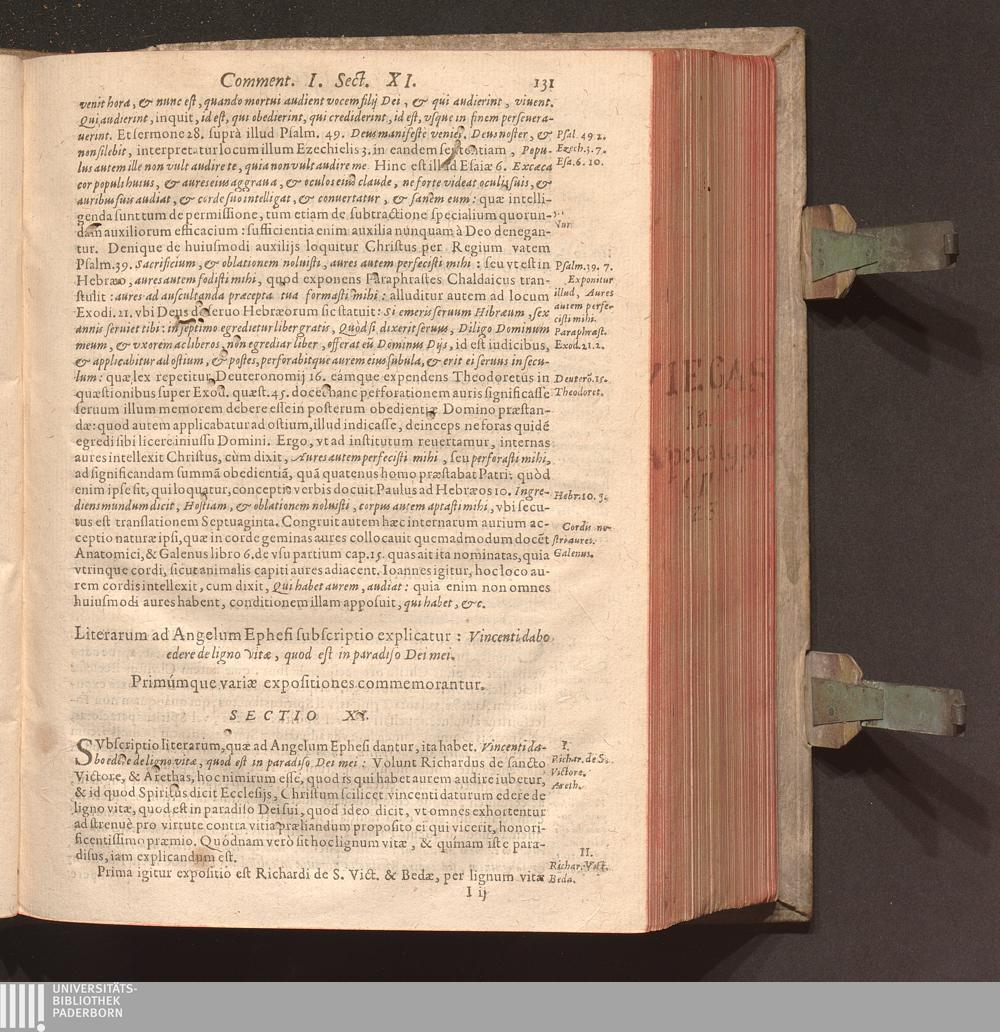 Comment. I. Sect. XI. 131
venit hora, & nunc est, quando mortui audient vocem filij Dei, & qui audierint, viuent.
Qui audierint, inquit, id est, qui obedierint, qui crediderint, id est, vsque in finem perseuera-
uerint. Et sermone 28. suprà illud Psalm. 49. Deus manifeste veniet. Deus noster, &
non silebit, interpretatur locum illum Ezechielis 3. in eandem sententiam, Popu-
lus autem ille non vult audire te, quia non vult audire me. Hinc est illud Esaiæ 6. Excæca
cor populi huius, & aures eius aggraua, & oculos eius claude, ne forte videat oculis suis, &
auribus suis audiat, & corde suo intelligat, & conuertatur, & sanem eum: quæ intelli-
genda sunt tum de permissione, tum etiam de subtractione specialium quorun-
dam auxiliorum efficacium: sufficientia enim auxilia nunquam à Deo denegan-
tur. Denique de huiusmodi auxilijs loquitur Christus per Regium vatem
Psalm. 39. Sacrificium, & oblationem noluisti, aures autem perfecisti mihi: seu vt est in
Hebræo, aures autem fodisti mihi, quod exponens Paraphrastes Chaldaicus tran-
stulit: aures ad auscultanda præcepta tua formasti mihi: alluditur autem ad locum
Exodi. 21. vbi Deus de seruo Hebræorum sic statuit: Si emeris seruum Hibræum, sex
annis seruiet tibi: in septimo egredietur liber gratis, Quòd si dixerit seruus, Diligo Dominum
meum, & vxorem ac liberos, non egrediar liber, offerat eũ Dominus Dijs, id est iudicibus,
& applicabitur ad ostium, & postes, perforabitque aurem eius subula, & erit ei seruus in secu-
lum: quæ lex repetitur Deuteronomij 16. eámque expendens Theodoretus in
quæstionibus super Exod. quæst. 45. docet hanc perforationem auris significasse
seruum illum memorem debere esse in posterum obedientiæ Domino præstan-
dæ: quod autem applicabatur ad ostium, illud indicasse, deinceps ne foras quidẽ
egredi sibi licere iniussu Domini. Ergo, vt ad institutum reuertamur, internas
aures intellexit Christus, cùm dixit, Aures autem perfecisti mihi, seu perforasti mihi,
ad significandam summã obedientiã, quã quatenus homo præstabat Patri: quòd
enim ipse sit, qui loquatur, conceptis verbis docuit Paulus ad Hebræos 10. Ingre-
diens mundum dicit, Hostiam, & oblationem noluisti, corpus autem aptasti mihi, vbi secu-
tus est translationem Septuaginta. Congruit autem hæc internarum aurium ac-
ceptio naturæ ipsi, quæ in corde geminas aures collocauit quemadmodum docẽt
Anatomici, & Galenus libro 6. de vsu partium cap. 15. quas ait ita nominatas, quia
vtrinque cordi, sicut animalis capiti aures adiacent. Ioannes igitur, hoc loco au-
rem cordis intellexit, cum dixit, Qui habet aurem, audiat: quia enim non omnes
huiusmodi aures habent, conditionem illam apposuit, qui habet, &c.
Psal. 49 2.
Ezech. 3. 7.
Esa. 6. 10.
Psalm. 39. 7.
Exponitur
illud, Aures
autem perfe-
cisti mihi.
Paraphrast.
Exod. 21. 2.
Deuterõ. 15.
Theodoret.
Hebr. 10. 5.
Cordis no-
stri aures.
Galenus.
Literarum ad Angelum Ephesi subscriptio explicatur: Vincenti dabo
edere de ligno vitæ, quod est in paradiso Dei mei.
Primúmque variæ expositiones commemorantur.
SECTIO
SVbscriptio literarum, quæ ad Angelum Ephesi dantur, ita habet. Vincenti da-
bo edere de ligno vitæ, quod est in paradiso Dei mei: Volunt Richardus de sancto
Victore, & Arethas, hoc nimirum esse, quod is qui habet aurem audire iubetur,
& id quod Spiritus dicit Ecclesijs, Christum scilicet vincenti daturum edere de
ligno vitæ, quod est in paradiso Dei sui, quod ideo dicit, vt omnes exhortentur
ad strenuè pro virtute contra vitia præliandum proposito ei qui vicerit, honori-
ficentissimo præmio. Quódnam verò sit hoc lignum vitæ, & quínam iste para-
disus, iam explicandum est.
Prima igitur expositio est Richardi de S. Vict. & Bedæ, per lignum vitæ
I.
Richar. de S.
Victore.
Areth.
II.
Richar. Vict.
Beda.
I ij
VIEGAS
In
Apocalyp
UNIVERSITÄTS-
BIBLIOTHEK
PADERBORN